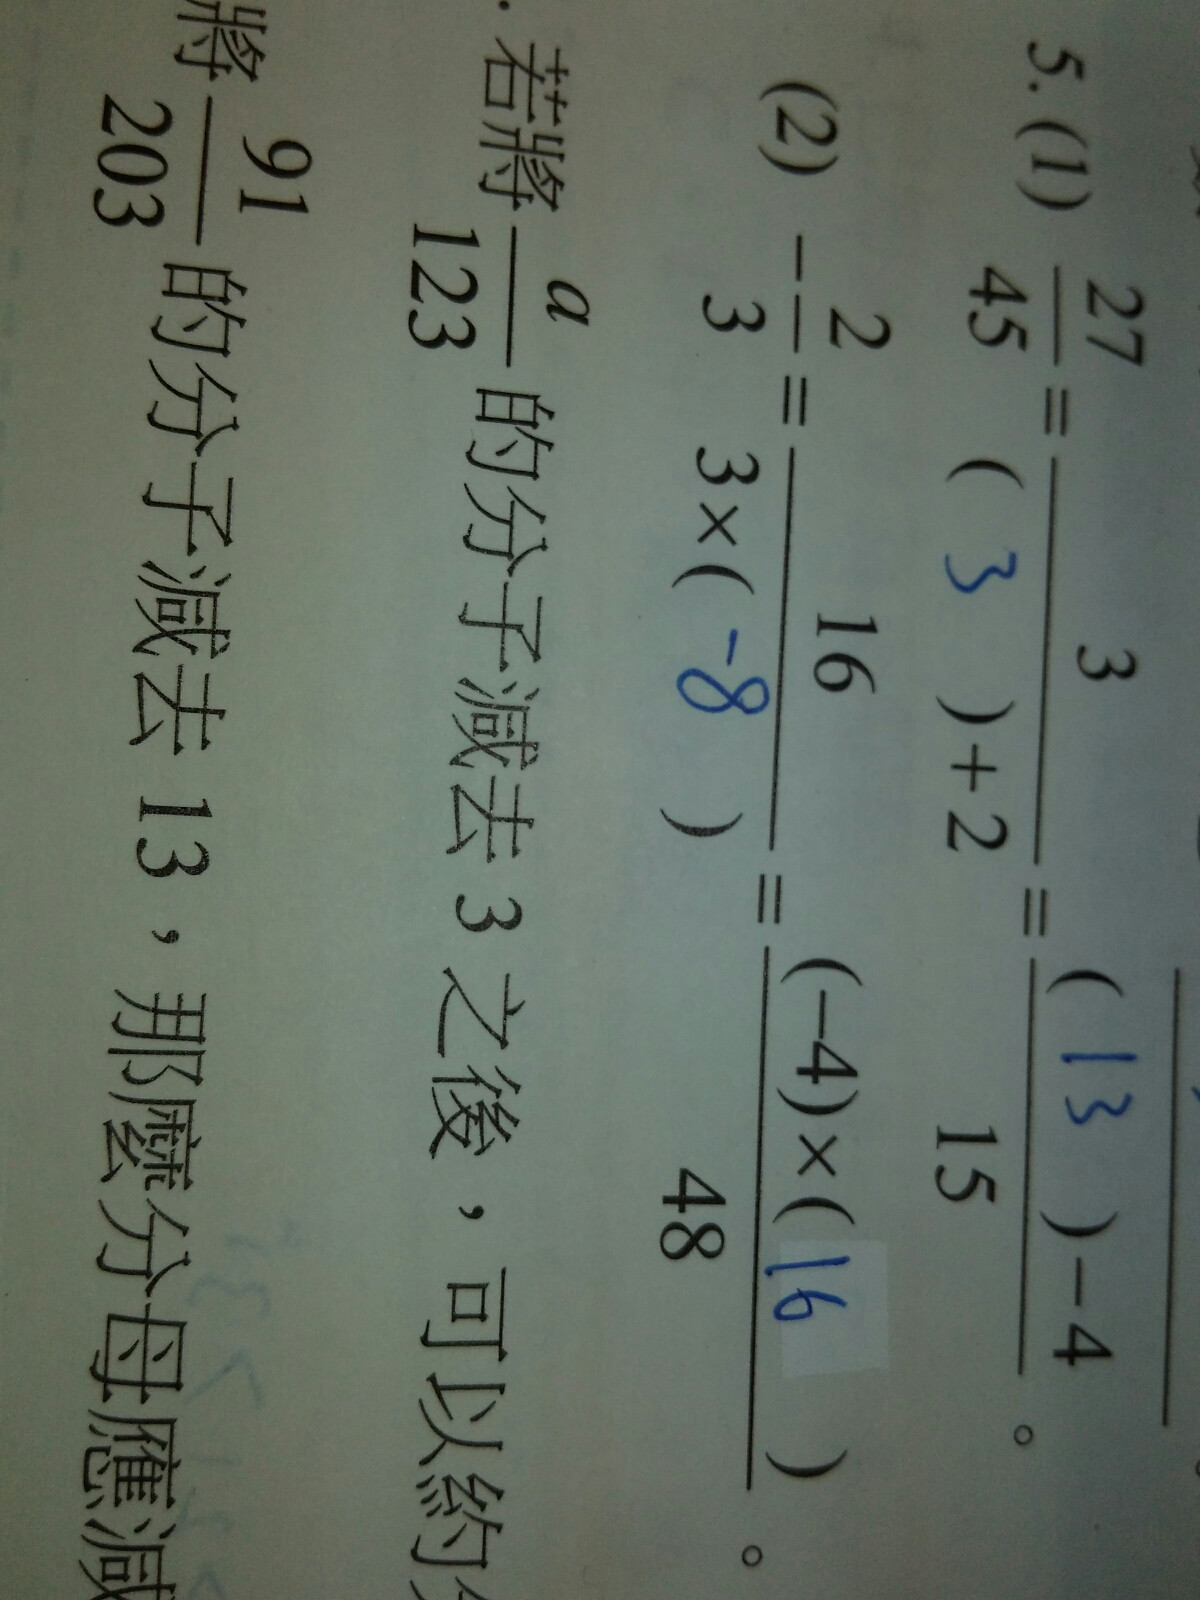 5.(1) 27/45 = 3/(3)+2 = (13)-4/15 。
(2) -2/3 = 16/3×(-8) = (-4)×(16)/48 。
. 若將 a/123 的分子減去 3 之後，可以約
將 91/203 的分子減去 13，那麼分母應減